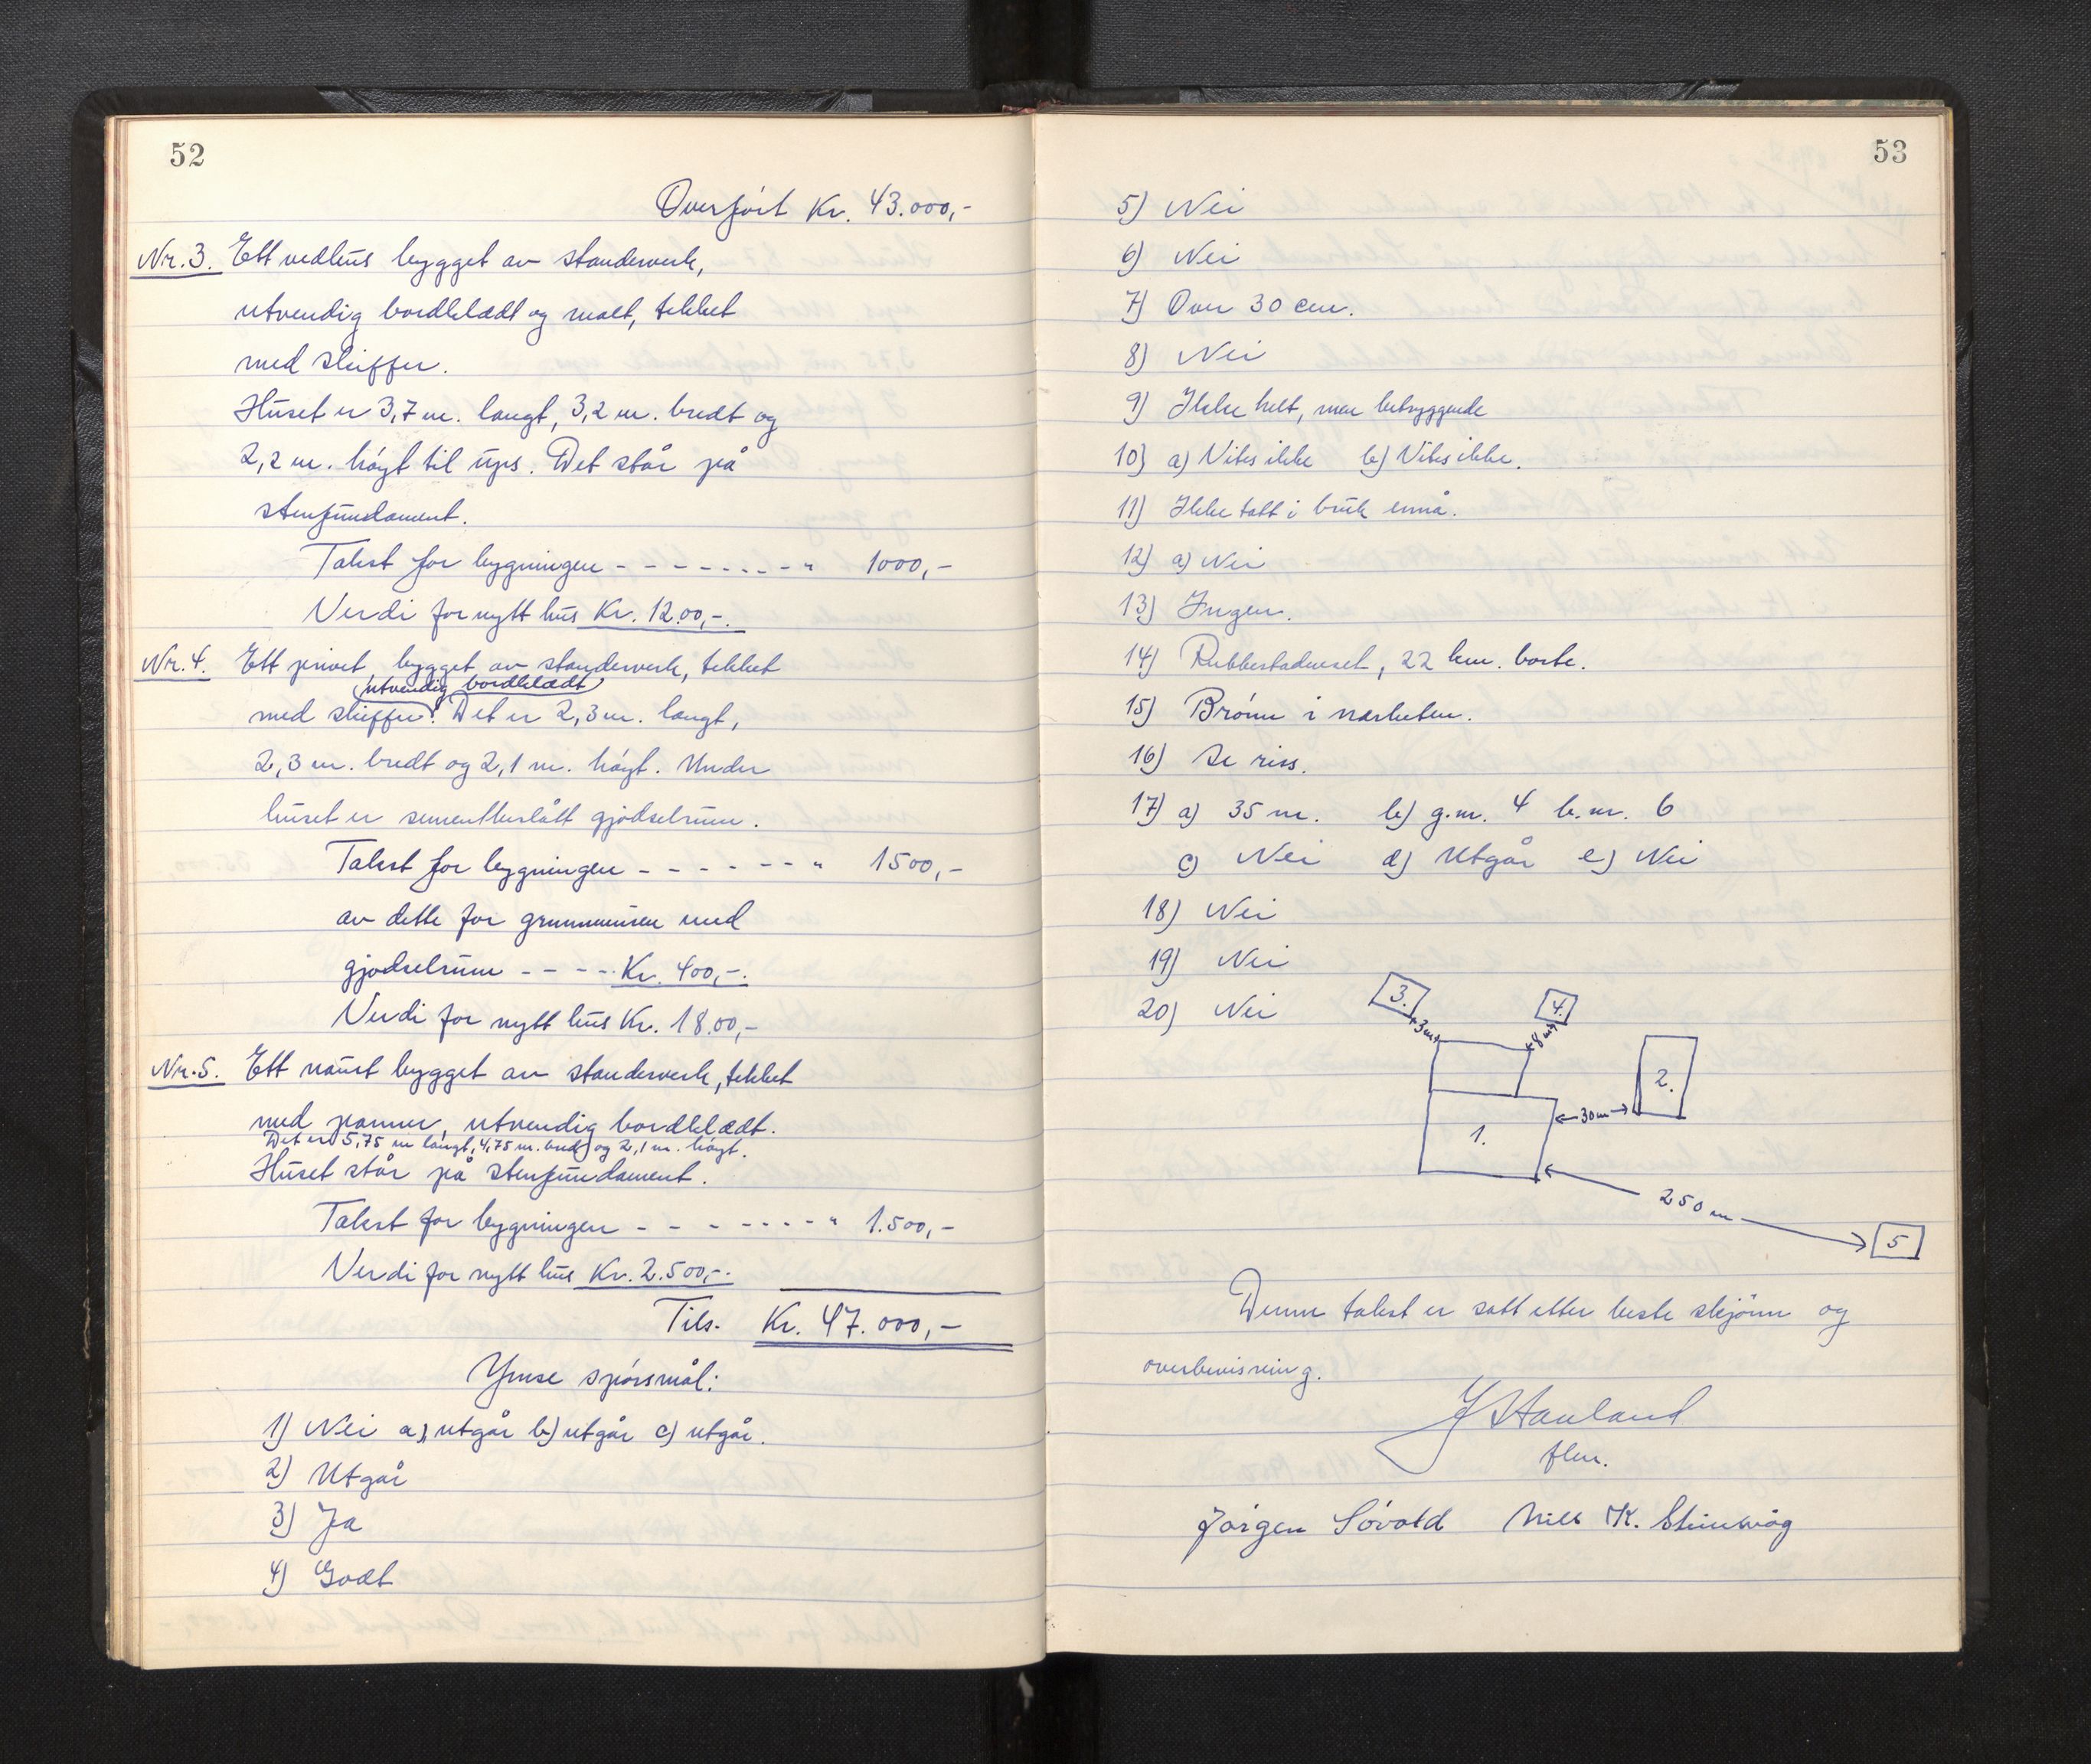 52
Overfört Kr. 43.000,-
Nr. 3. Ett vedhus bygget av standerverk,
utvendig bordklædt og malt, tekket
med skiffer.
Huset er 3,7 m. langt, 3,2 m. bredt og
2,2 m. höyt til ups. Det står på
stenfundament.
Takst for bygningen - - - - - - - - - " 1000,-
Verdi for nytt hus Kr. 12.00,-.
Nr. 4. Ett privet, bygget av standerverk, tekket
(utvendig bordklædt)
med skiffer. Det er 2,3 m. langt,
2,3 m. bredt og 2,1 m. höyt. Under
huset er sementbeslått gjödselrum.
Takst for bygningen - - - - - - - " 1500,-
av dette for grunnmuren med
gjödselrum - - - - Kr. 400,-.
Verdi for nytt hus Kr. 18.00,-
Nr. 5. Ett naust bygget av standerverk, tekket
med panner, utvendig bordklædt.
Det er 5,75 m langt, 4,75 m. bred og 2,1 m. höyt.
Huset står på stenfundament.
Takst for bygningen - - - - - - - - " 1.500,-
Verdi for nytt hus Kr. 2.500,-.
Tils. Kr. 47.000,-
Ymse spörsmål:
1) Nei a) utgår b) utgår c) utgår.
2) Utgår
3) Ja
4) Godt
53
5) Nei
6) Nei
7) Over 30 cm.
8) Nei
9) Ikke helt, men betryggende
10) a) Vites ikke b) Vites ikke.
11) Ikke tatt i bruk ennå.
12) a) Nei
13) Ingen.
14) Rubbestadneset, 22 km. borte.
15) Brönn i nærheten.
16) Se riss.
17) a) 35 m. b) g.nr. 4 b.nr. 6
c) Nei d) Utgår e) Nei
18) Nei
19) Nei
20) Nei
3.
4.
3m
8m
2.
30m
1.
250 m
5
Denne takst er satt etter beste skjönn og
overbevisning.
J Hauland
flm.
Jörgen Sövold Nils K. Steinsvåg